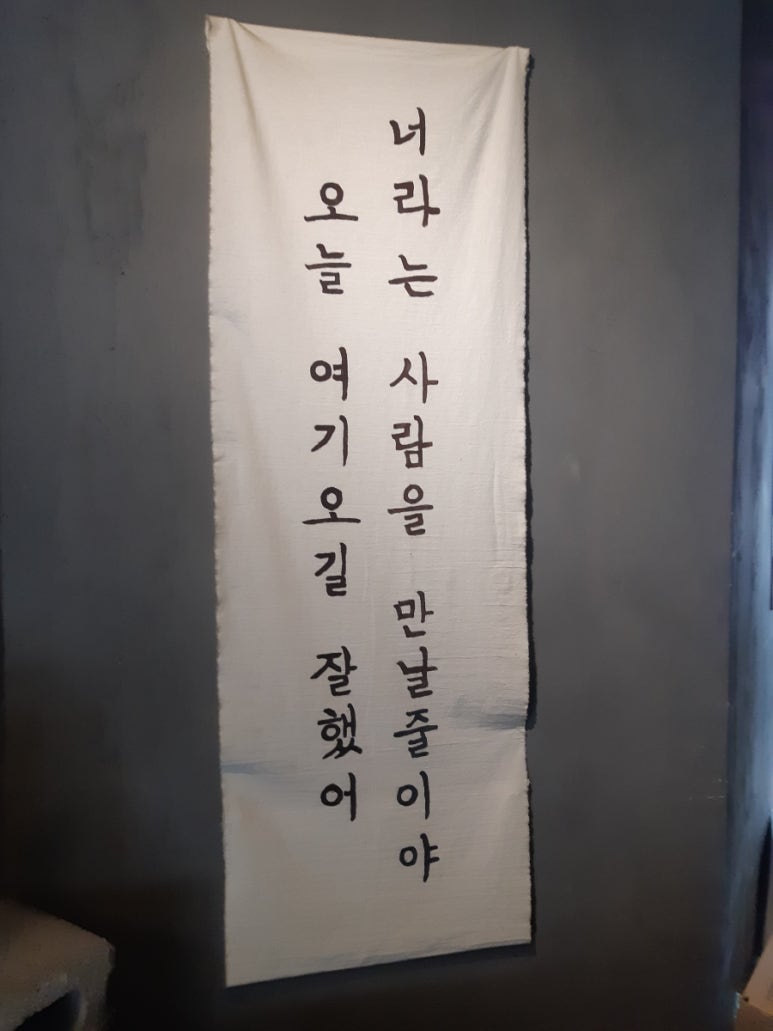 너라는 사람을 만날줄이야
오늘 여기오길 잘했어